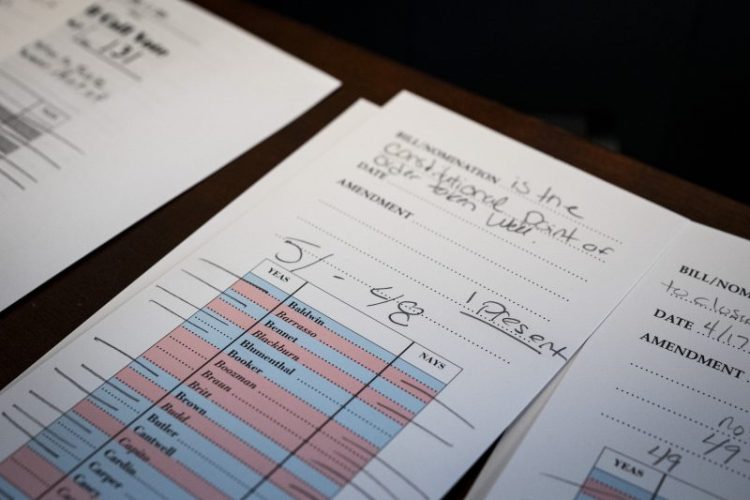 ll Call Vote
131
YEAS
BILL/NOMINATION is the
constitutional point of
DATE order taken well.
AMENDMENT
51 - 48
1 Present
YEAS
NAYS
Baldwin
Barrasso
Bennet
Blackburn
Blumenthal
Booker
Boozman
Braun
Britt
Brown
Budd
Butler
Cantwell
Capito
Cardin
Carper
BILL/NOM
to closu
DATE 4/17
AMENDMENT
no
49
49
YEAS